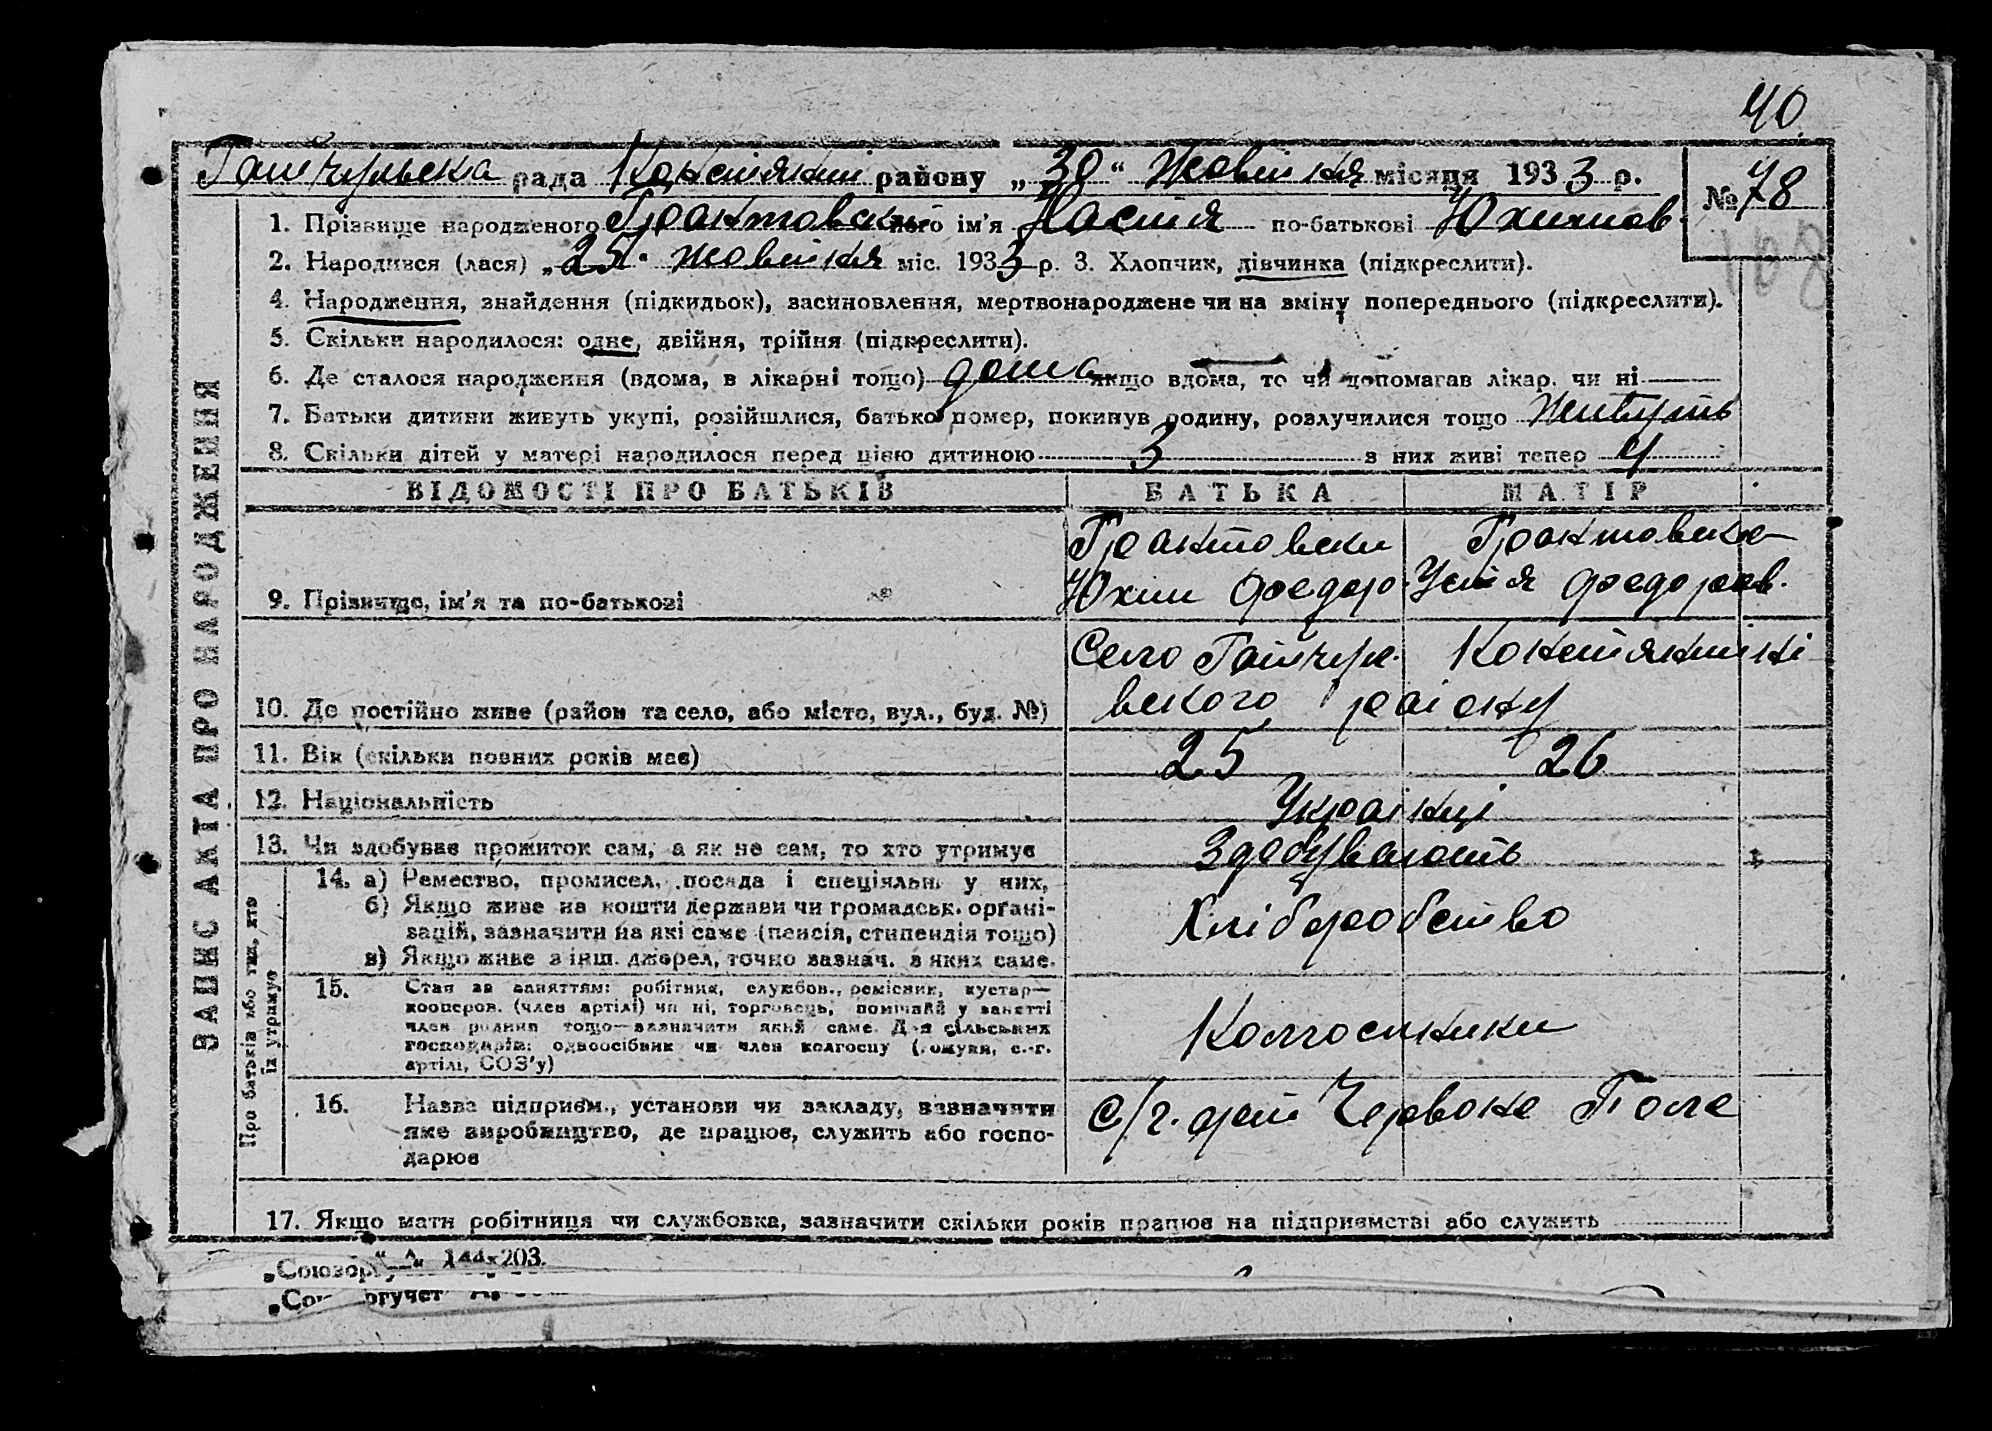 40.
Гайчульска рада Констянтин району „30“ Жовтня місяця 1933 р.
№ 78
108
1. Прізвище народженого його ім'я Настя по-батькові Юхимов.
2. Народився (лася) „25“ жовтня міс. 1933 р. 3. Хлопчик, дівчинка (підкреслити).
4. Народження, знайдення (підкидьок), засиновлення, мертвонароджене чи на зміну попереднього (підкреслити).
5. Скільки народилося: одне, двійня, трійня (підкреслити).
6. Де сталося народження (вдома, в лікарні тощо) дома якщо вдома, то чи допомагав лікар. чи ні
7. Батьки дитини живуть укупі, розійшлися, батько помер, покинув родину, розлучилися тощо Живуть
8. Скільки дітей у матері народилося перед цією дитиною 3 з них живі тепер 4
ЗАПИС АКТА ПРО НАРОДЖЕННЯ
ВІДОМОСТІ ПРО БАТЬКІВ БАТЬКА МАТІР
9. Прізвище, ім'я та по-батькові
Юхим Федор. Устя Федоров.
Село Гайчул. Констянтині
10. Де постійно живе (район та село, або місто, вул., буд. №) вського раіону
11. Вік (скільки повних років має) 25 26
12. Національність Украінці
13. Чи здобуває прожиток сам, а як не сам, то хто утримує Здобувають
Про батьків або тих, хто їх утримує
14. а) Ремество, промисел, посада і спеціяльн. у них,
б) Якщо живе на кошти держави чи громадськ. органі-
зацій, зазначити на які саме (пенсія, стипендія тощо)
в) Якщо живе з інш. джерел, точно зазнач. з яких саме.
Хліборобство
15. Стан за заняттям: робітник, службов., ремісник, кустар—
кооперов. (член артілі) чи ні, торговець, помічний у занятті
член родини тощо—зазначити який саме. Для сільських
господарів: одноосібник чи член колгоспу (комуни, с.-г.
артілі, СОЗ'у)
Колгоспники
16. Назва підприєм., установи чи закладу, зазначити
яке виробництво, де працює, служить або госпо-
дарює
С/г. арт Червоне Поле
17. Якщо мати робітниця чи службовка, зазначити скільки років працює на підприємстві або служить
203.